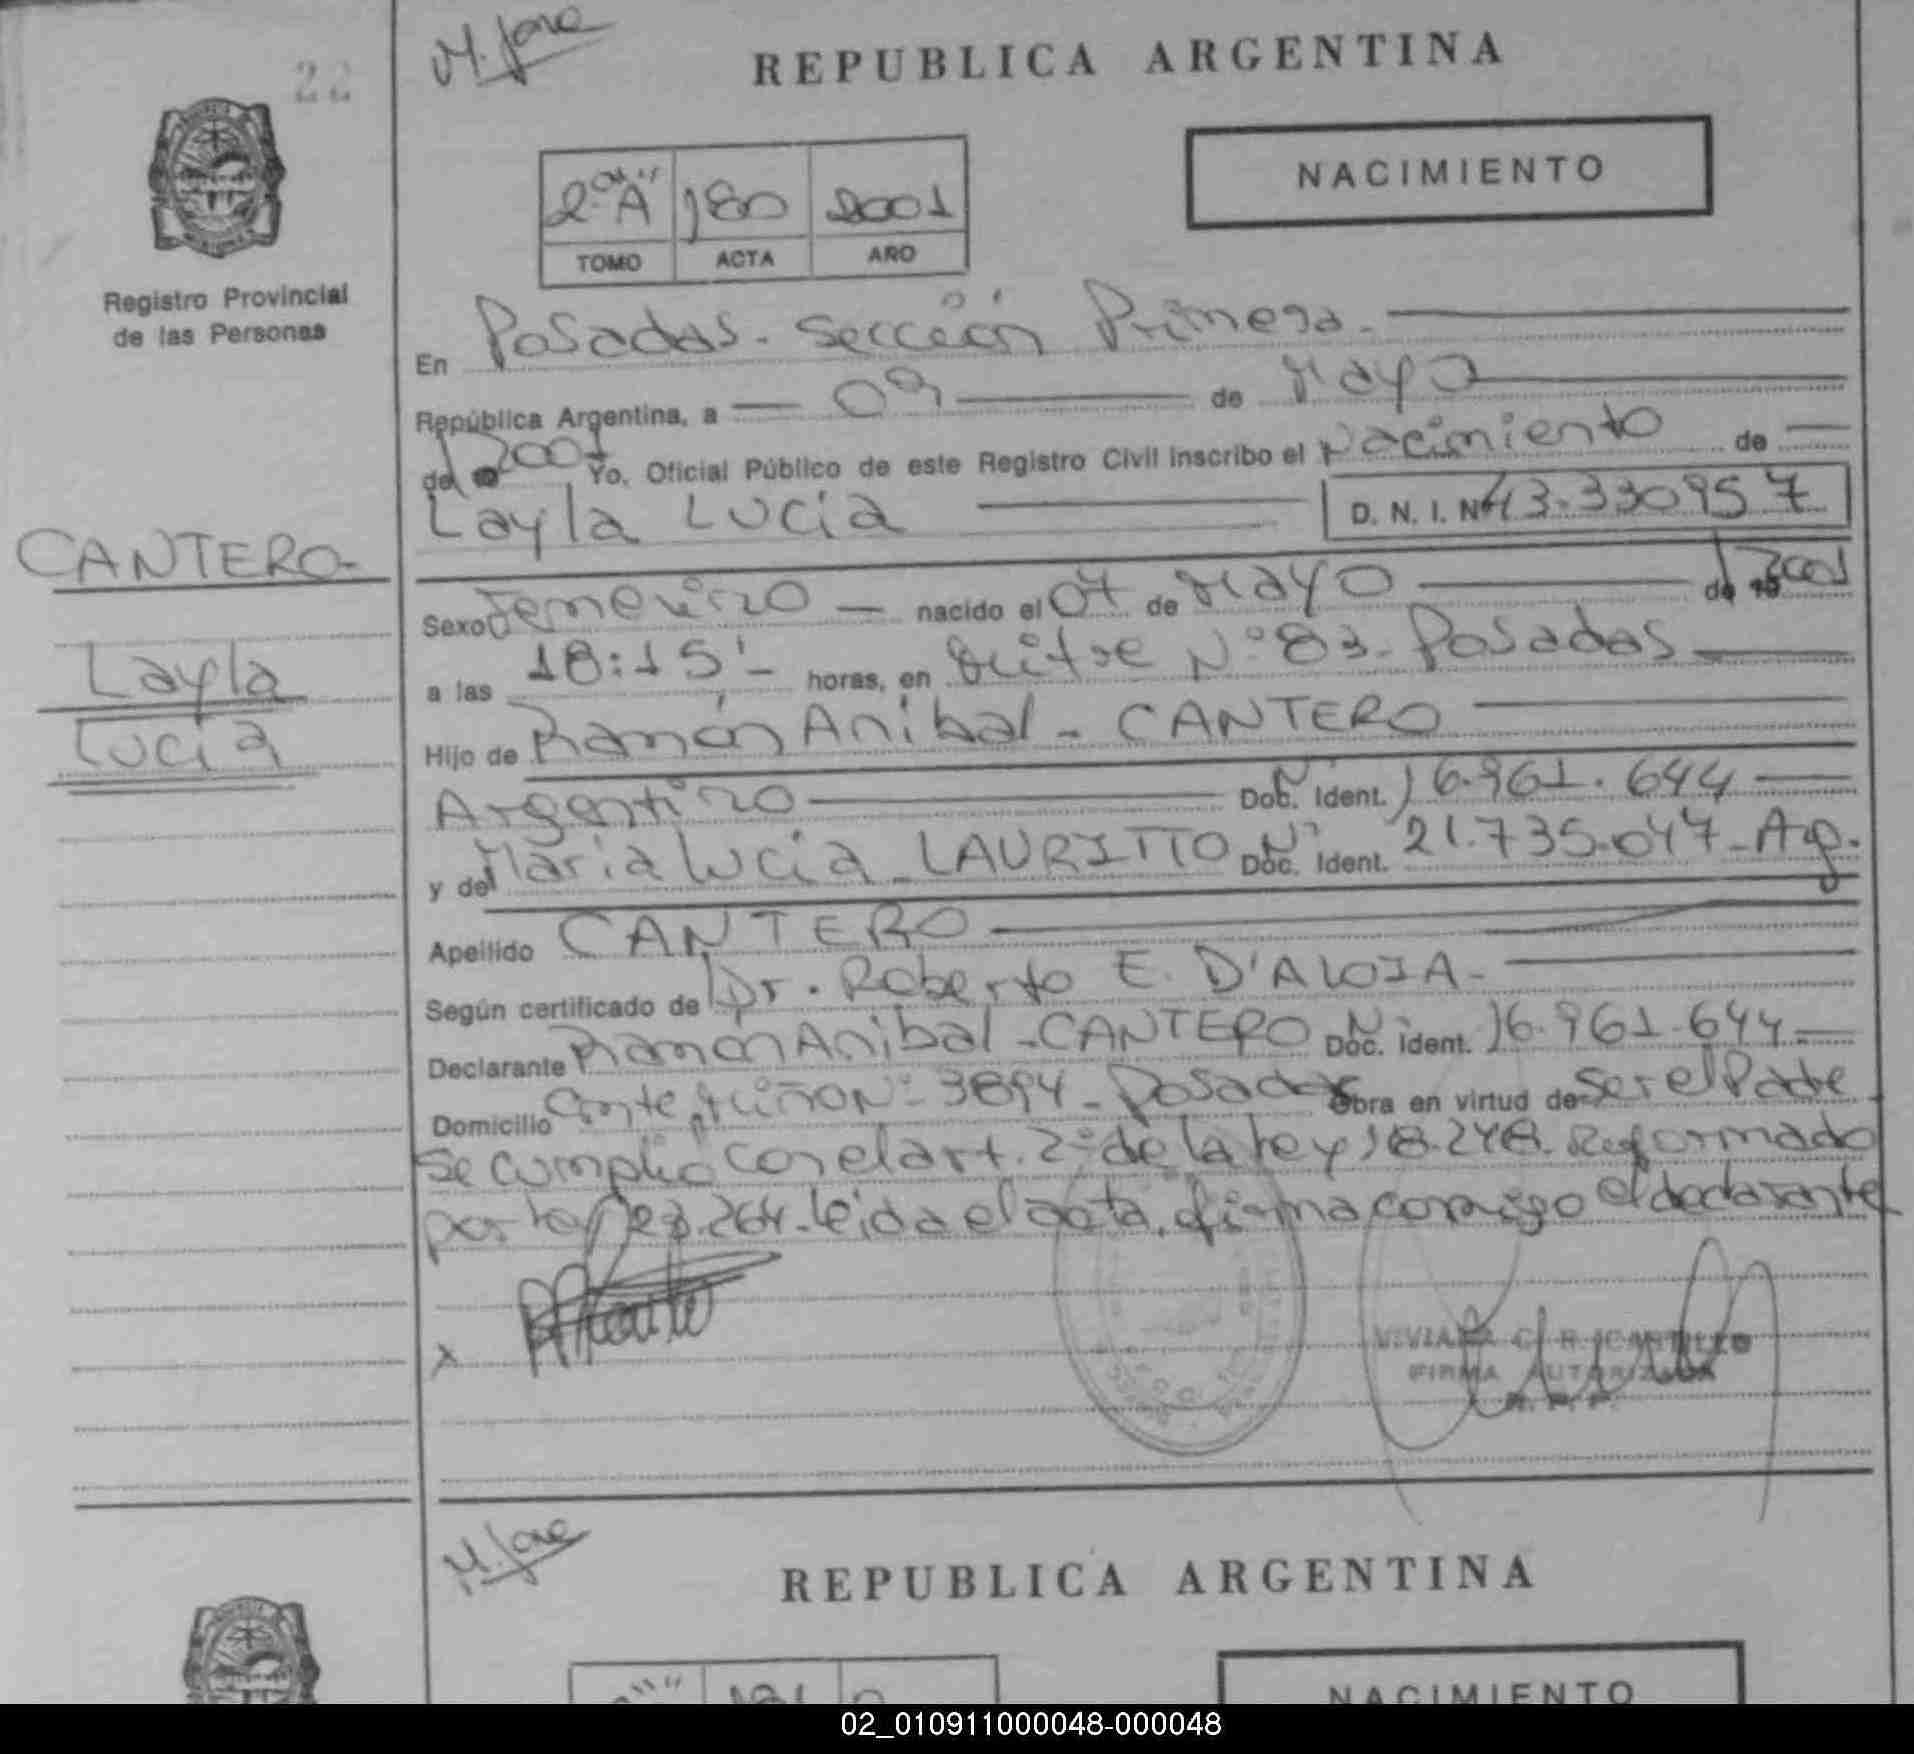 22
M. Jose
REPUBLICA ARGENTINA
NACIMIENTO
2º "A" 180 2001
TOMO ACTA AÑO
Registro Provincial
de las Personas
En Posadas. Sección Primera.
República Argentina, a 09 de Mayo
del 2001 Yo, Oficial Público de este Registro Civil inscribo el Nacimiento de
Layla Lucía D. N. I. Nº 43.330957
CANTERO
Layla
Lucía
Sexo Femenino nacido el 07 de Mayo de 19 2001
a las 18:15' horas, en Mitre Nº 83 - Posadas
Hijo de Ramón Anibal - CANTERO
Argentino Doc. Nº Ident. 16.961.644
y de María Lucía - LAURITTO Doc. Nº Ident. 21.735.047 - Arg.
Apellido CANTERO
Según certificado de Dr. Roberto E. D'ALOIA -
Declarante Ramón Anibal - CANTERO Doc. Nº Ident. 16.961.644
Domicilio Nº 3894 - Posadas Obra en virtud de ser el Padre
Se cumplió con el art. 2º de la Ley 18.248 Reformado
por Ley 23.264. leida el acta, firma conmigo el declarante
X
FIRMA AUTORIZADA
M. Jose
REPUBLICA ARGENTINA
NACIMIENTO
02_010911000048-000048